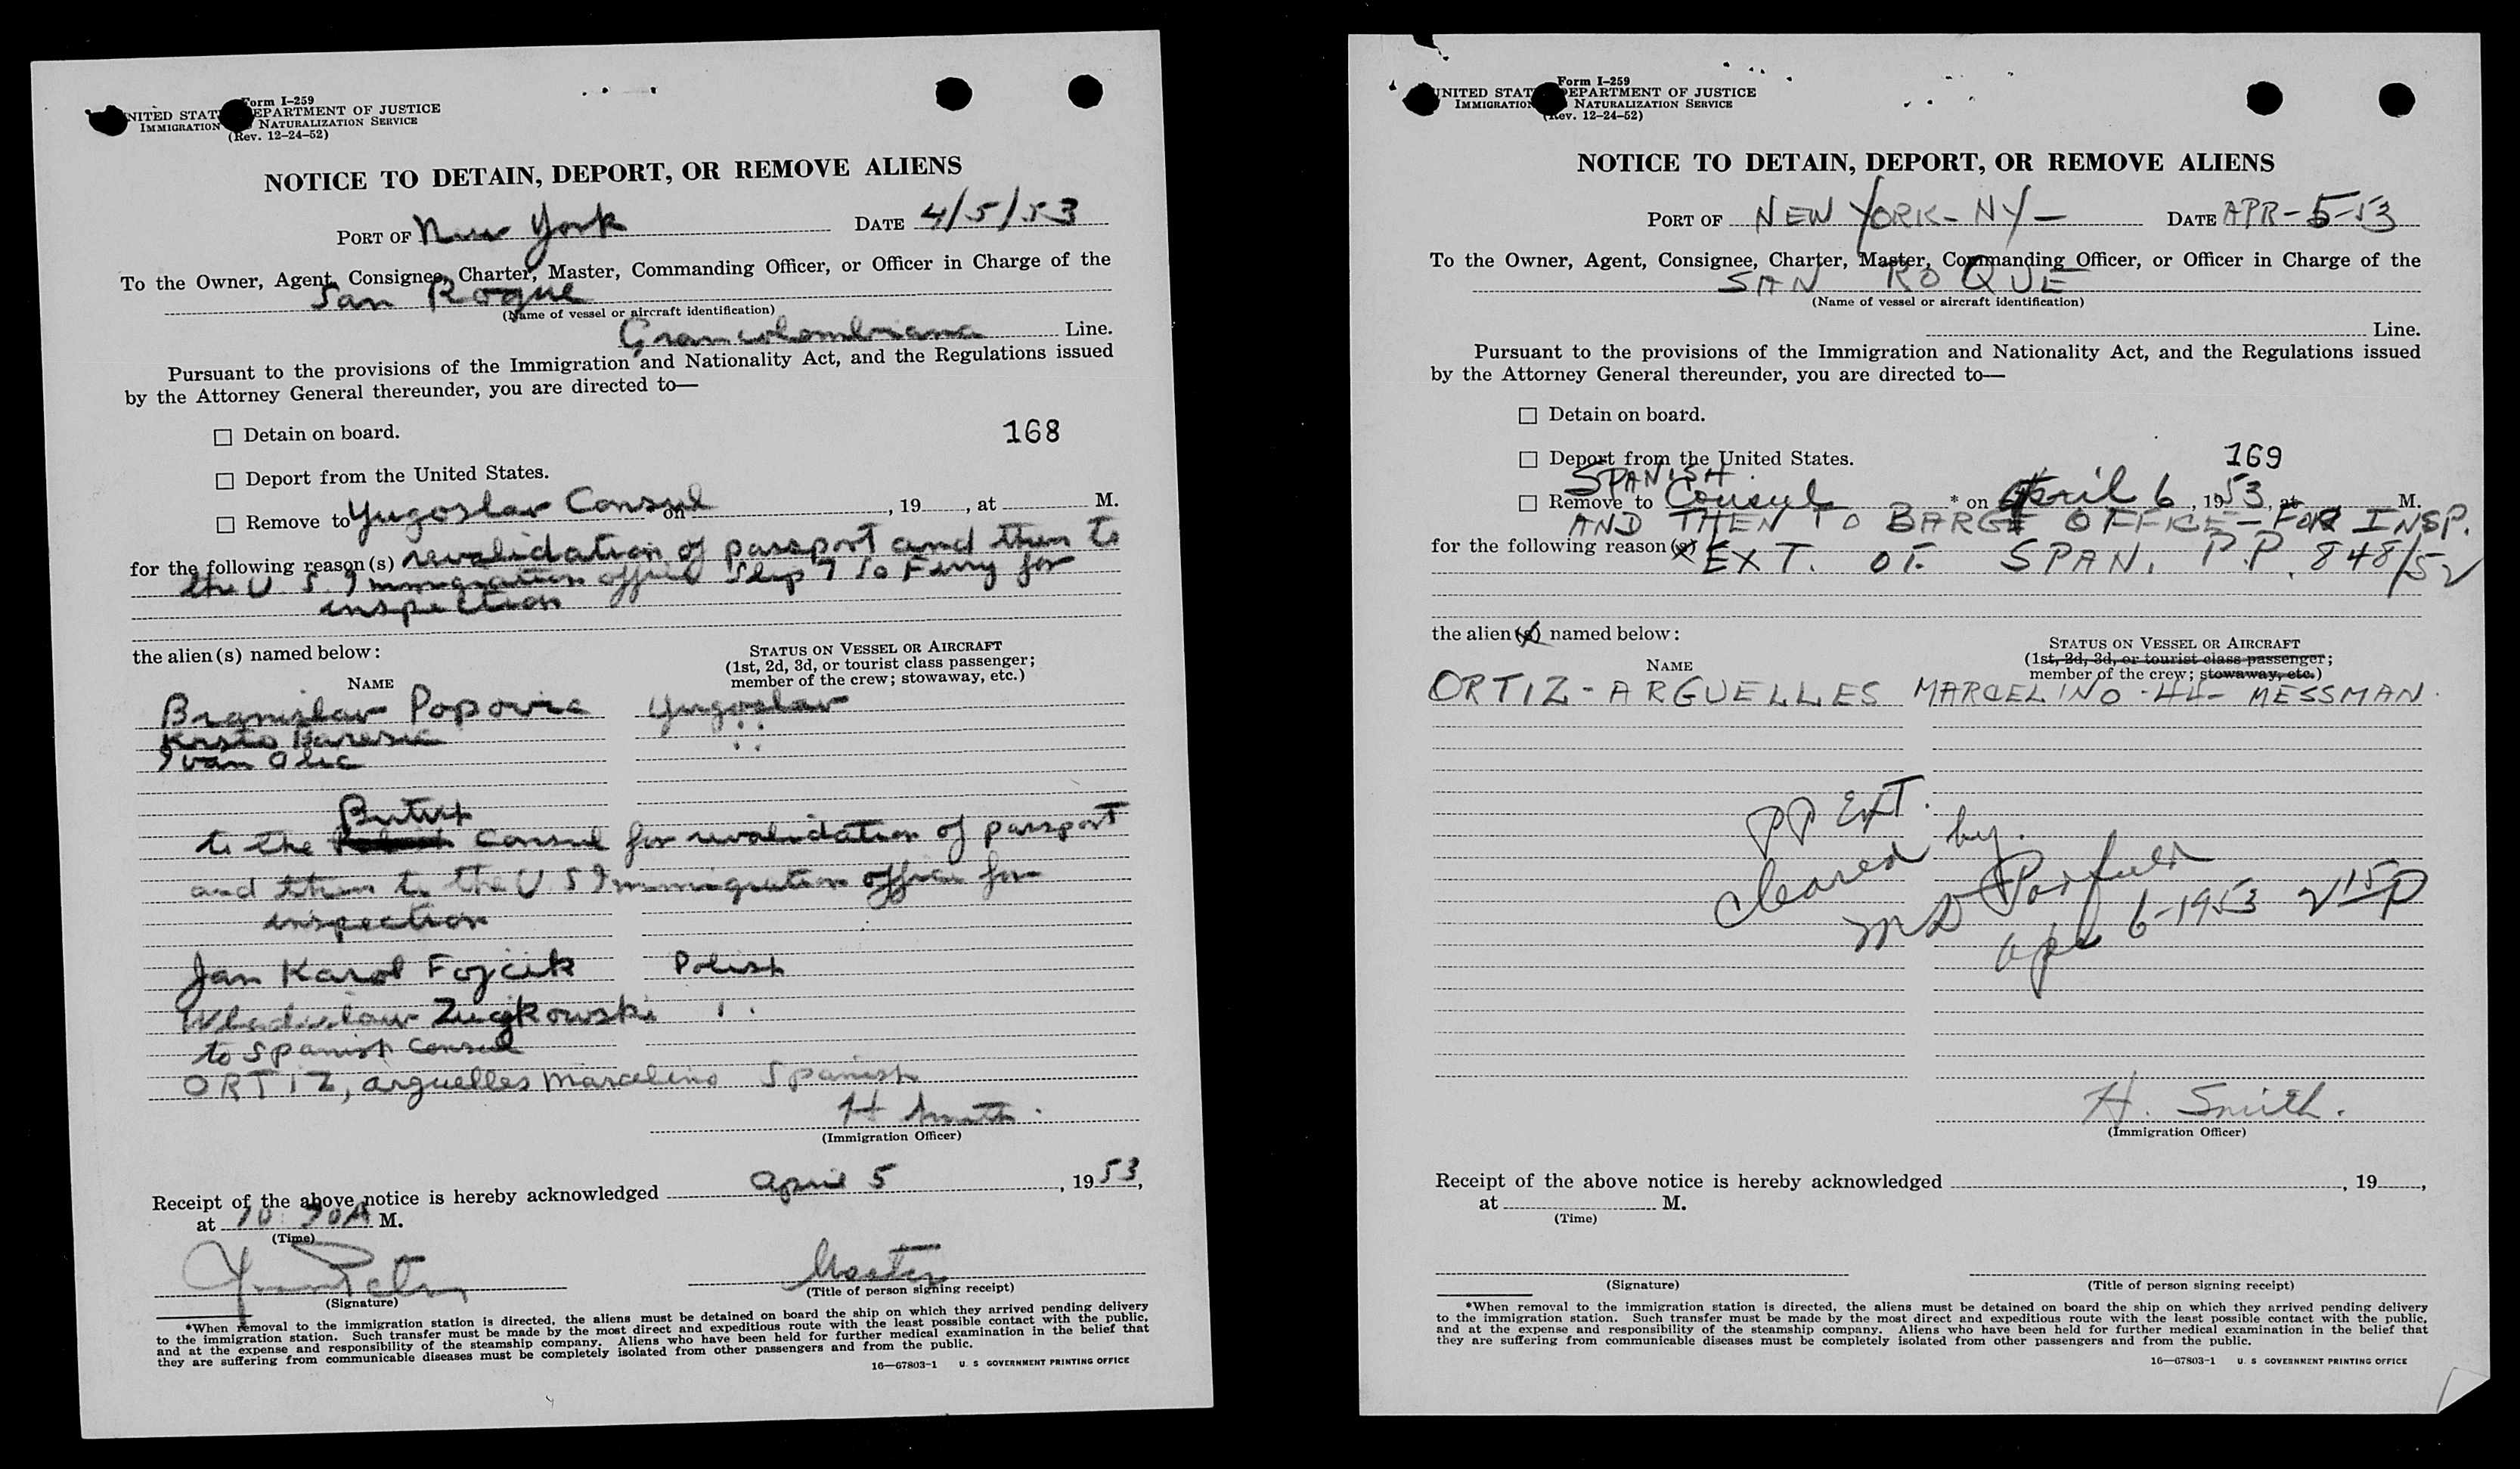 Form I-259
UNITED STAT DEPARTMENT OF JUSTICE
IMMIGRATION NATURALIZATION SERVICE
(Rev. 12-24-52)
NOTICE TO DETAIN, DEPORT, OR REMOVE ALIENS
PORT OF New York DATE 4/5/53
To the Owner, Agent, Consignee, Charter, Master, Commanding Officer, or Officer in Charge of the
San Roque
(Name of vessel or aircraft identification)
Grancolombiana Line.
Pursuant to the provisions of the Immigration and Nationality Act, and the Regulations issued
by the Attorney General thereunder, you are directed to—
☐ Detain on board.
168
☐ Deport from the United States.
☐ Remove to Yugoslav Consul on , 19 , at M.
for the following reason(s) revalidation of passport and then to
the U. S. Immigration office Slip 7 So Ferry for
inspection
the alien(s) named below:
STATUS ON VESSEL OR AIRCRAFT
(1st, 2d, 3d, or tourist class passenger;
member of the crew; stowaway, etc.)
NAME
Branislav Popovic Yugoslav
Krsto " "
Ivan Olic " "
British
to the consul for revalidation of passport
and then to the U S Immigration office for
inspection
Jan Karol Fojcik Polish
Wladislaw Zugkowski "
to Spanish consul
ORTIZ, arguelles marcelino Spanish
H Smith.
(Immigration Officer)
Receipt of the above notice is hereby acknowledged April 5, 1953,
at 10:30A M.
(Time)
Master
(Signature)
(Title of person signing receipt)
*When removal to the immigration station is directed, the aliens must be detained on board the ship on which they arrived pending delivery
to the immigration station. Such transfer must be made by the most direct and expeditious route with the least possible contact with the public,
and at the expense and responsibility of the steamship company. Aliens who have been held for further medical examination in the belief that
they are suffering from communicable diseases must be completely isolated from other passengers and from the public.
16—67803-1 U. S GOVERNMENT PRINTING OFFICE
Form I-259
UNITED STAT DEPARTMENT OF JUSTICE
IMMIGRATION NATURALIZATION SERVICE
(Rev. 12-24-52)
NOTICE TO DETAIN, DEPORT, OR REMOVE ALIENS
PORT OF NEW YORK - NY - DATE APR-5-53
To the Owner, Agent, Consignee, Charter, Master, Commanding Officer, or Officer in Charge of the
SAN ROQUE
(Name of vessel or aircraft identification)
Line.
Pursuant to the provisions of the Immigration and Nationality Act, and the Regulations issued
by the Attorney General thereunder, you are directed to—
☐ Detain on board.
☐ Deport from the United States. 169
SPANISH
☐ Remove to Consul * on April 6, 1953, at M.
AND THEN TO BARGE OFFICE - FOR INSP.
for the following reason(s) EXT. OF SPAN. P.P. 848/52
the alien(s) named below:
STATUS ON VESSEL OR AIRCRAFT
(1st, 2d, 3d, or tourist class passenger;
member of the crew; stowaway, etc.)
NAME
ORTIZ-ARGUELLES MARCELINO -44- MESSMAN
PP EXT.
Cleared by.
Apr 6-1953 2 15 P
H. Smith.
(Immigration Officer)
Receipt of the above notice is hereby acknowledged , 19 ,
at M.
(Time)
(Signature)
(Title of person signing receipt)
*When removal to the immigration station is directed, the aliens must be detained on board the ship on which they arrived pending delivery
to the immigration station. Such transfer must be made by the most direct and expeditious route with the least possible contact with the public,
and at the expense and responsibility of the steamship company. Aliens who have been held for further medical examination in the belief that
they are suffering from communicable diseases must be completely isolated from other passengers and from the public.
16—67803-1 U. S GOVERNMENT PRINTING OFFICE